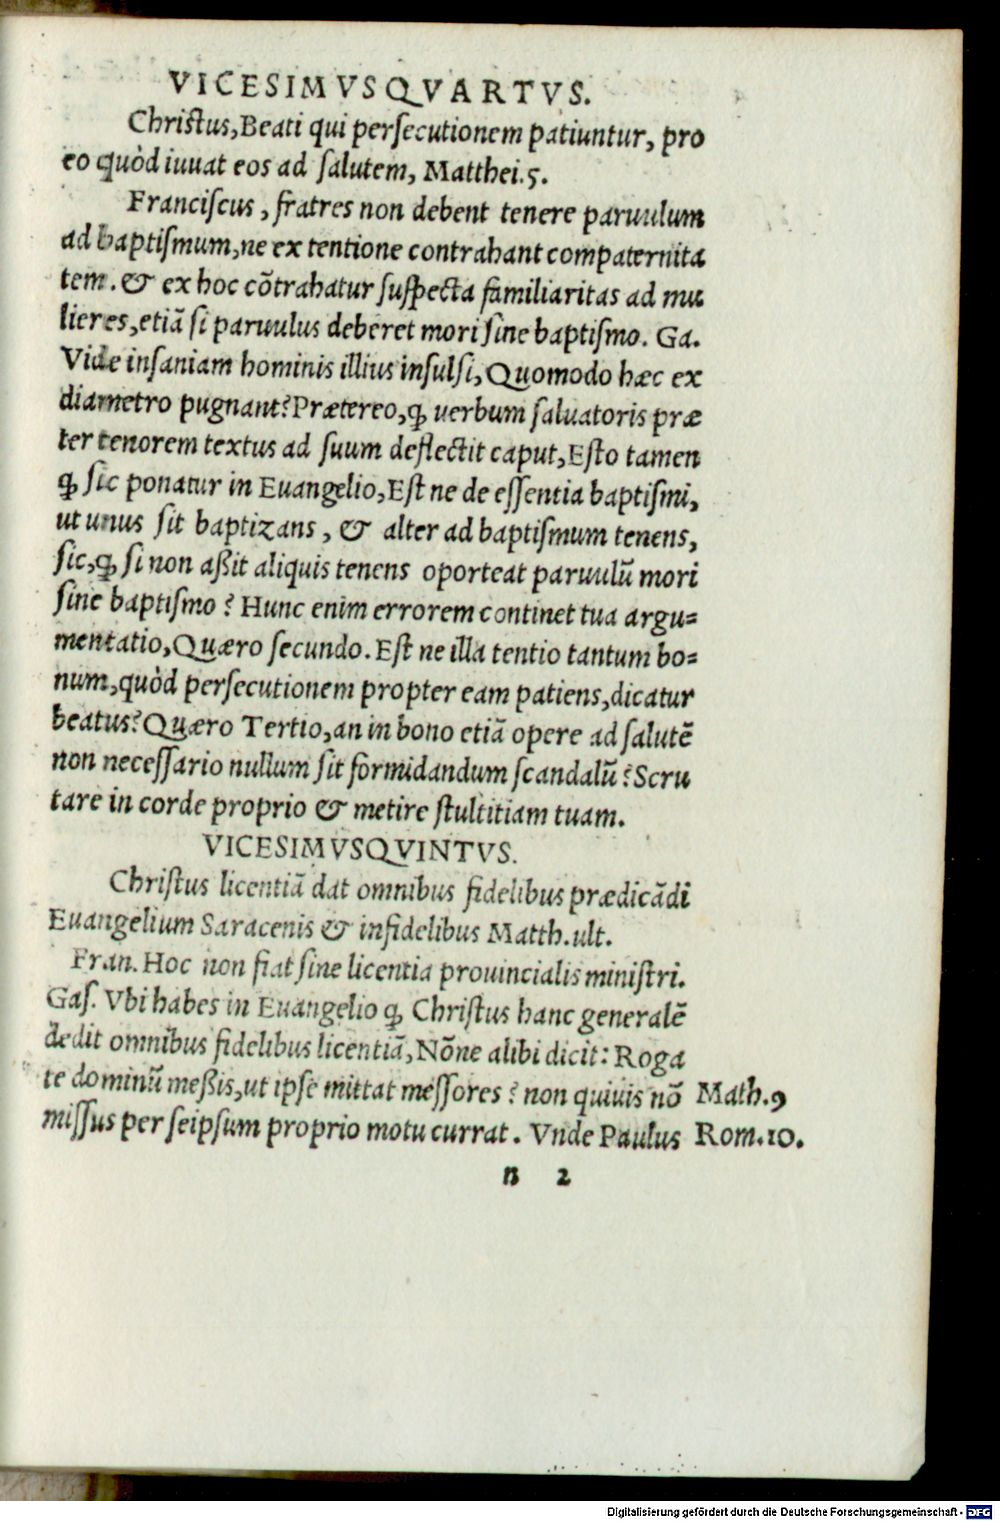 VICESIMVSQVARTVS.
Christus, Beati qui persecutionem patiuntur, pro
eo quòd iuuat eos ad salutem, Matthei.5.
Franciscus, fratres non debent tenere paruulum
ad baptismum, ne ex tentione contrahant compaternita
tem. & ex hoc cõtrahatur suspecta familiaritas ad mu
lieres, etiã si paruulus deberet mori sine baptismo. Ga.
Vide insaniam hominis illius insulsi, Quomodo hæc ex
diametro pugnant? Prætereo, ꝙ uerbum saluatoris præ
ter tenorem textus ad suum deflectit caput, Esto tamen
ꝙ sic ponatur in Euangelio, Est ne de essentia baptismi,
ut unus sit baptizans, & alter ad baptismum tenens,
sic, ꝙ si non aßit aliquis tenens oporteat paruulũ mori
sine baptismo? Hunc enim errorem continet tua argu=
mentatio, Quæro secundo. Est ne illa tentio tantum bo=
num, quòd persecutionem propter eam patiens, dicatur
beatus? Quæro Tertio, an in bono etiã opere ad salutẽ
non necessario nullum sit formidandum scandalũ? Scru
tare in corde proprio & metire stultitiam tuam.
VICESIMVSQVINTVS.
Christus licentiã dat omnibus fidelibus prædicãdi
Euangelium Saracenis & infidelibus Matth.ult.
Fran. Hoc non fiat sine licentia prouincialis ministri.
Gas. Vbi habes in Euangelio ꝙ Christus hanc generalẽ
dedit omnibus fidelibus licentiã, Nõne alibi dicit: Roga
te dominũ meßis, ut ipse mittat messores? non quiuis nõ Math.9
missus per seipsum proprio motu currat. Vnde Paulus Rom.10.
n 2
Digitalisierung gefördert durch die Deutsche Forschungsgemeinschaft - DFG